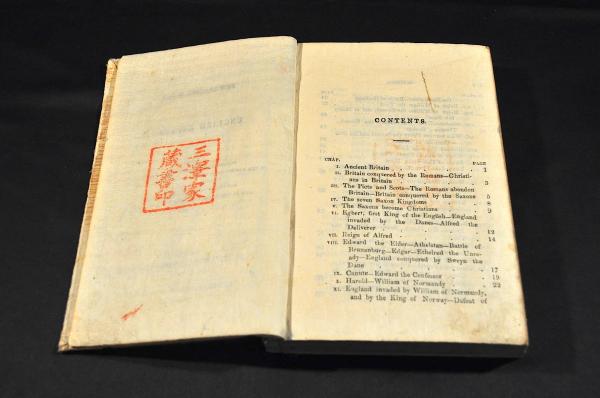 藏書印
CONTENTS.
CHAP. PAGE
I. Ancient Britain . . . . 1
II. Britain conquered by the Romans—Christi-
ans in Britain . . . . 3
III. The Picts and Scots—The Romans abandon
Britain—Britain conquered by the Saxons 5
IV. The seven Saxon Kingdoms . . . 8
V. The Saxons become Christians . . . 9
VI. Egbert, first King of the English—England
invaded by the Danes—Alfred the
Deliverer . . . . 12
VII. Reign of Alfred . . . . 14
VIII. Edward the Elder—Athelstan—Battle of
Brunanburg—Edgar—Ethelred the Unre-
ady—England conquered by Sweyn the
Dane . . . . 17
IX. Canute—Edward the Confessor . . . 19
X. Harold—William of Normandy . . . 22
XI. England invaded by William of Normandy,
and by the King of Norway—Defeat of